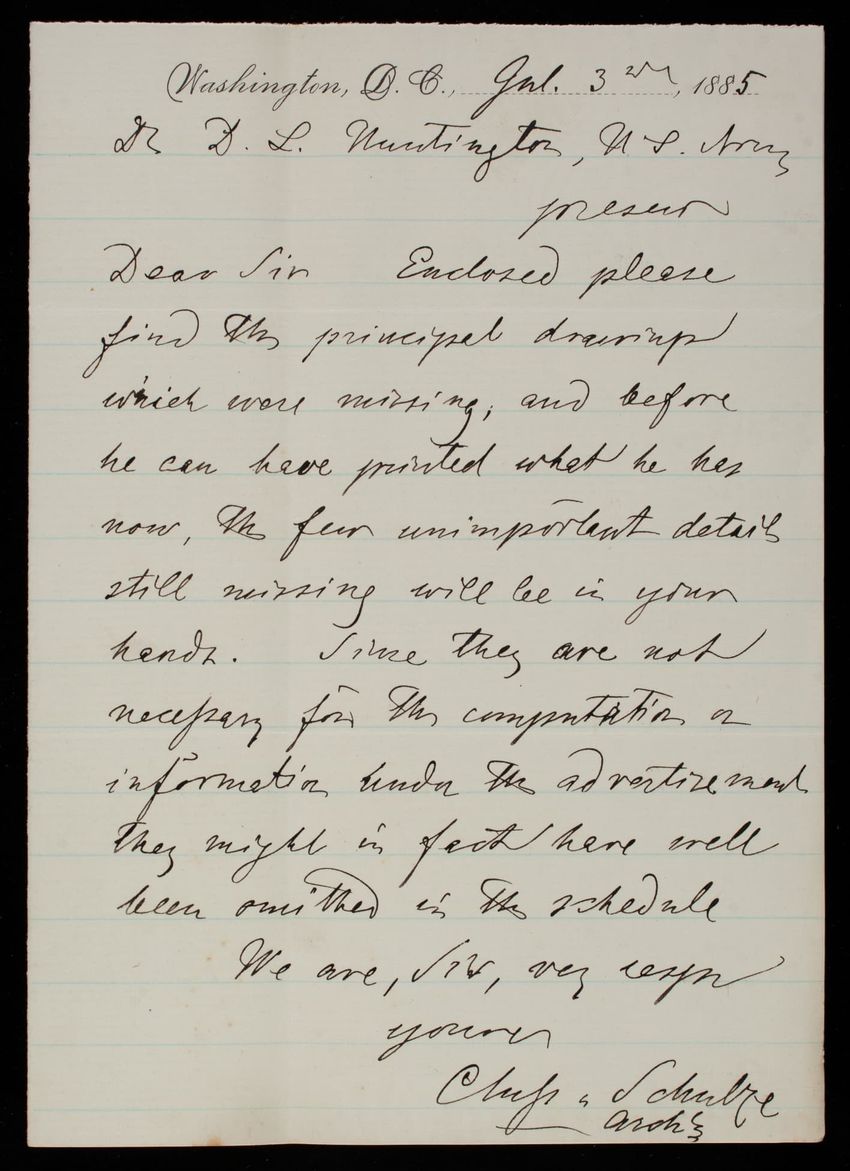 Washington, D. C., Jul. 3rd, 1885
Dr D. L. Huntington, U.S. Army
present
Dear Sir Enclosed please
find the principal drawings
which were missing, and before
he can have printed what he has
now, the few unimportant details
still missing will be in your
hands. Since they are not
necessary for the computation or
information under the advertisement
they might in fact have well
been omitted in the schedule
We are, Sir, very respy
yours
Cluss & Schulze
Archts